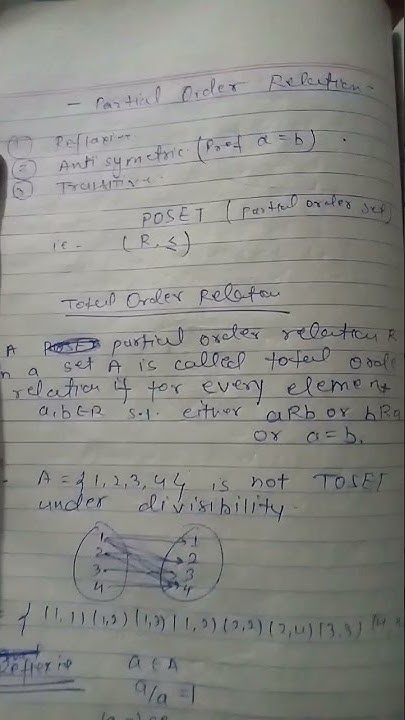 - Partial Order Relation -
(1) Reflexive
(2) Anti symetric. (Proof a = b)
(3) Transitive.
POSET (Partial order set)
ie. (R, ≤)
Total Order Relation
A partial order relation R
n a set A is called total orde
relation if for every element
a, b ∈ R s.t. either aRb or bRa
or a = b.
- A = {1, 2, 3, 4} is not TOSET
under divisibility.
1 1
2 2
3 3
4 4
= { (1,1) (1,2) (1,3) (2,2) (2,4) (3,3)
Reflexive a ∈ A
a/a = 1